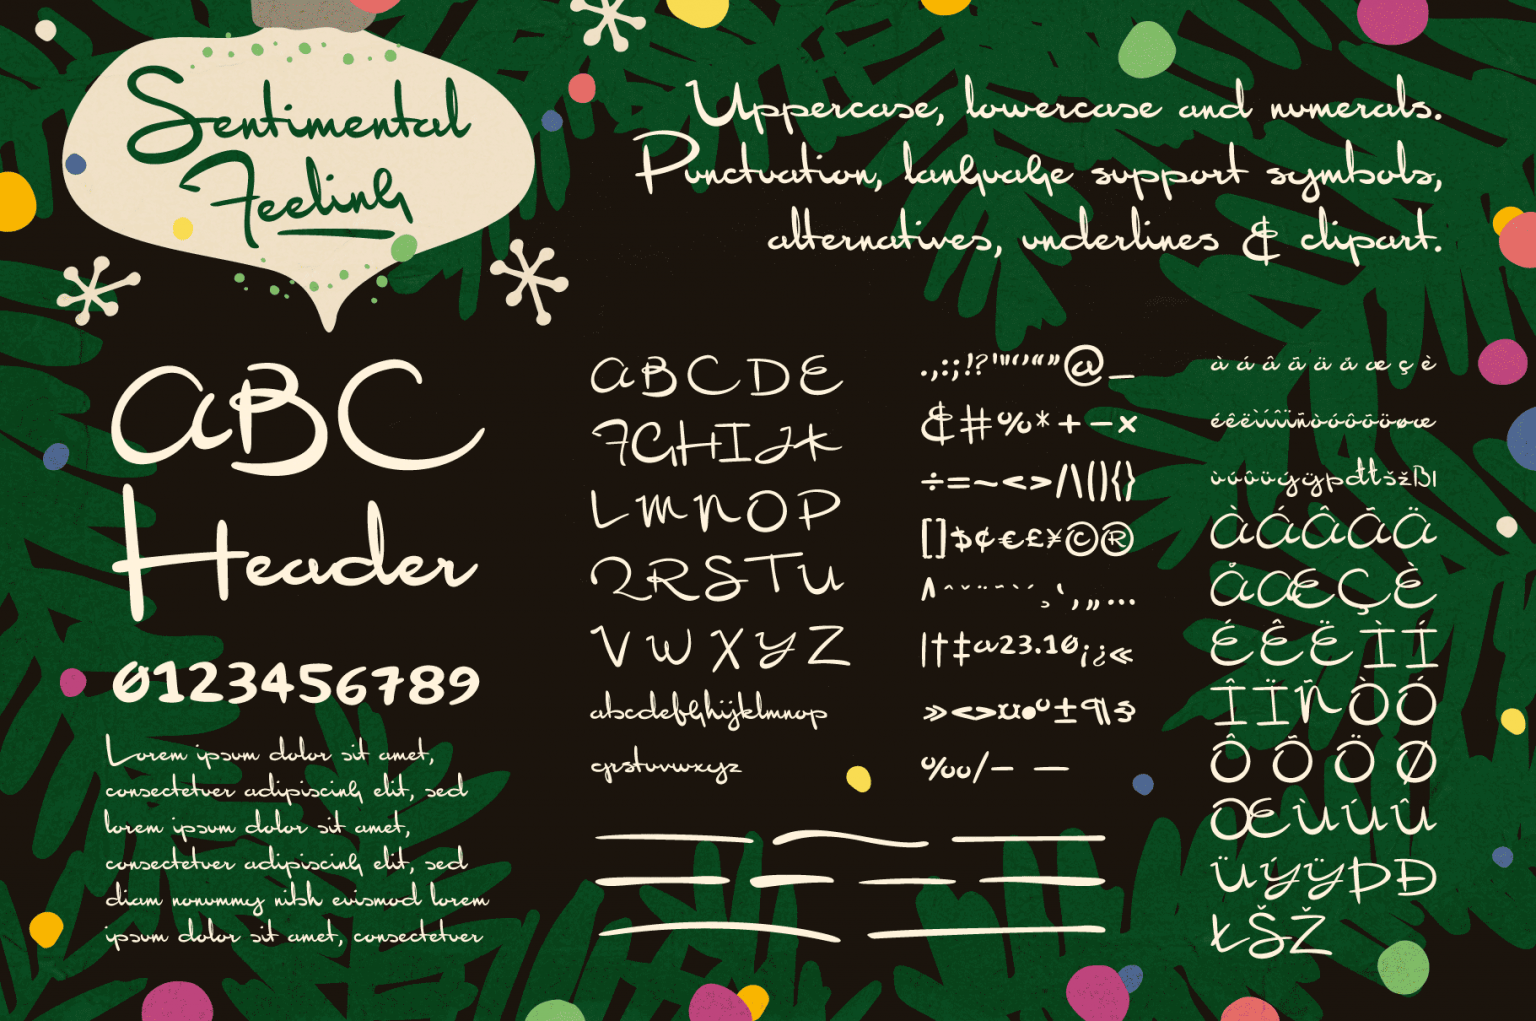 Sentimental
Feeling
Uppercase, lowercase and numerals.
Punctuation, language support symbols,
alternatives, underlines & clipart.
ABC
Header
0123456789
Lorem ipsum dolor sit amet,
consectetuer adipiscing elit, sed
lorem ipsum dolor sit amet,
consectetuer adipiscing elit, sed
diam nonummy nibh euismod lorem
ipsum dolor sit amet, consectetuer
ABCDE
FGHIJK
LMNOP
QRSTU
VWXYZ
abcdefghijklmnop
qrstuvwxyz
.,:;!?'"‘’“”@_
&#%*+−×
÷=~<>/\|(){}
[]$¢€£¥©®
|†‡a23.10¡¿«
»<>¤•º±¶§
‰/– —
à á â ã ä å æ ç è
éêëìíîïñòóôõöøœ
ùúûüýÿþđłšžßı
ÀÁÂÃÄ
ÅÆÇÈ
ÉÊËÌÍ
ÎÏÑÒÓ
ÔÕÖØ
ŒÙÚÛ
ÜÝŸÞĐ
ŁŠŽ